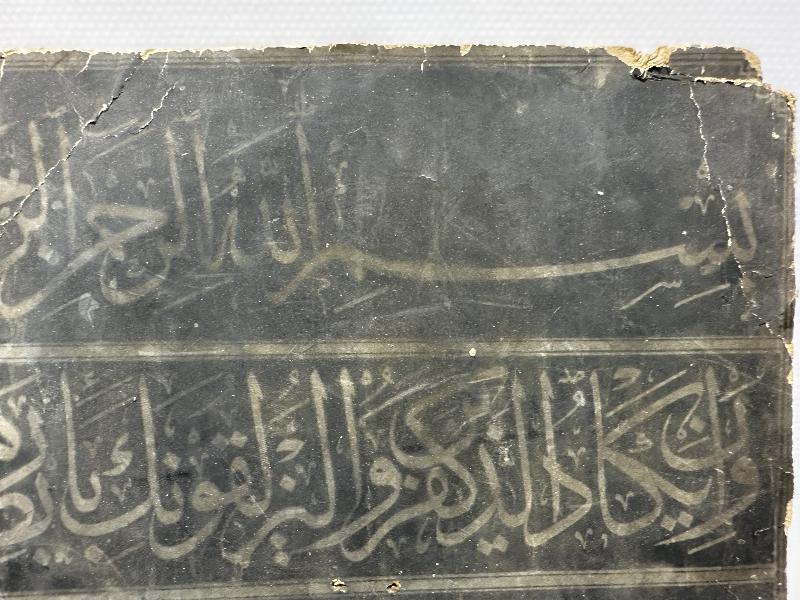 بسم الله الرحمن الر
وان يكاد الذين كفروا ليزلقونك بابصا